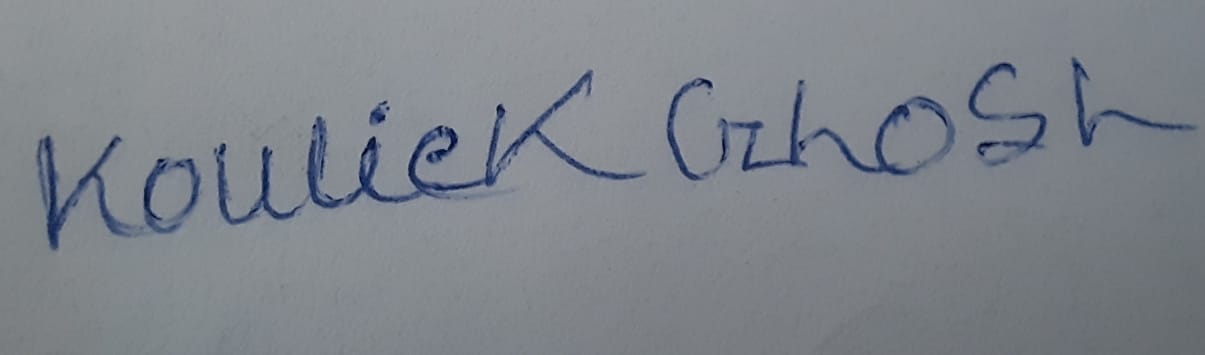 Kouliek Ghosh